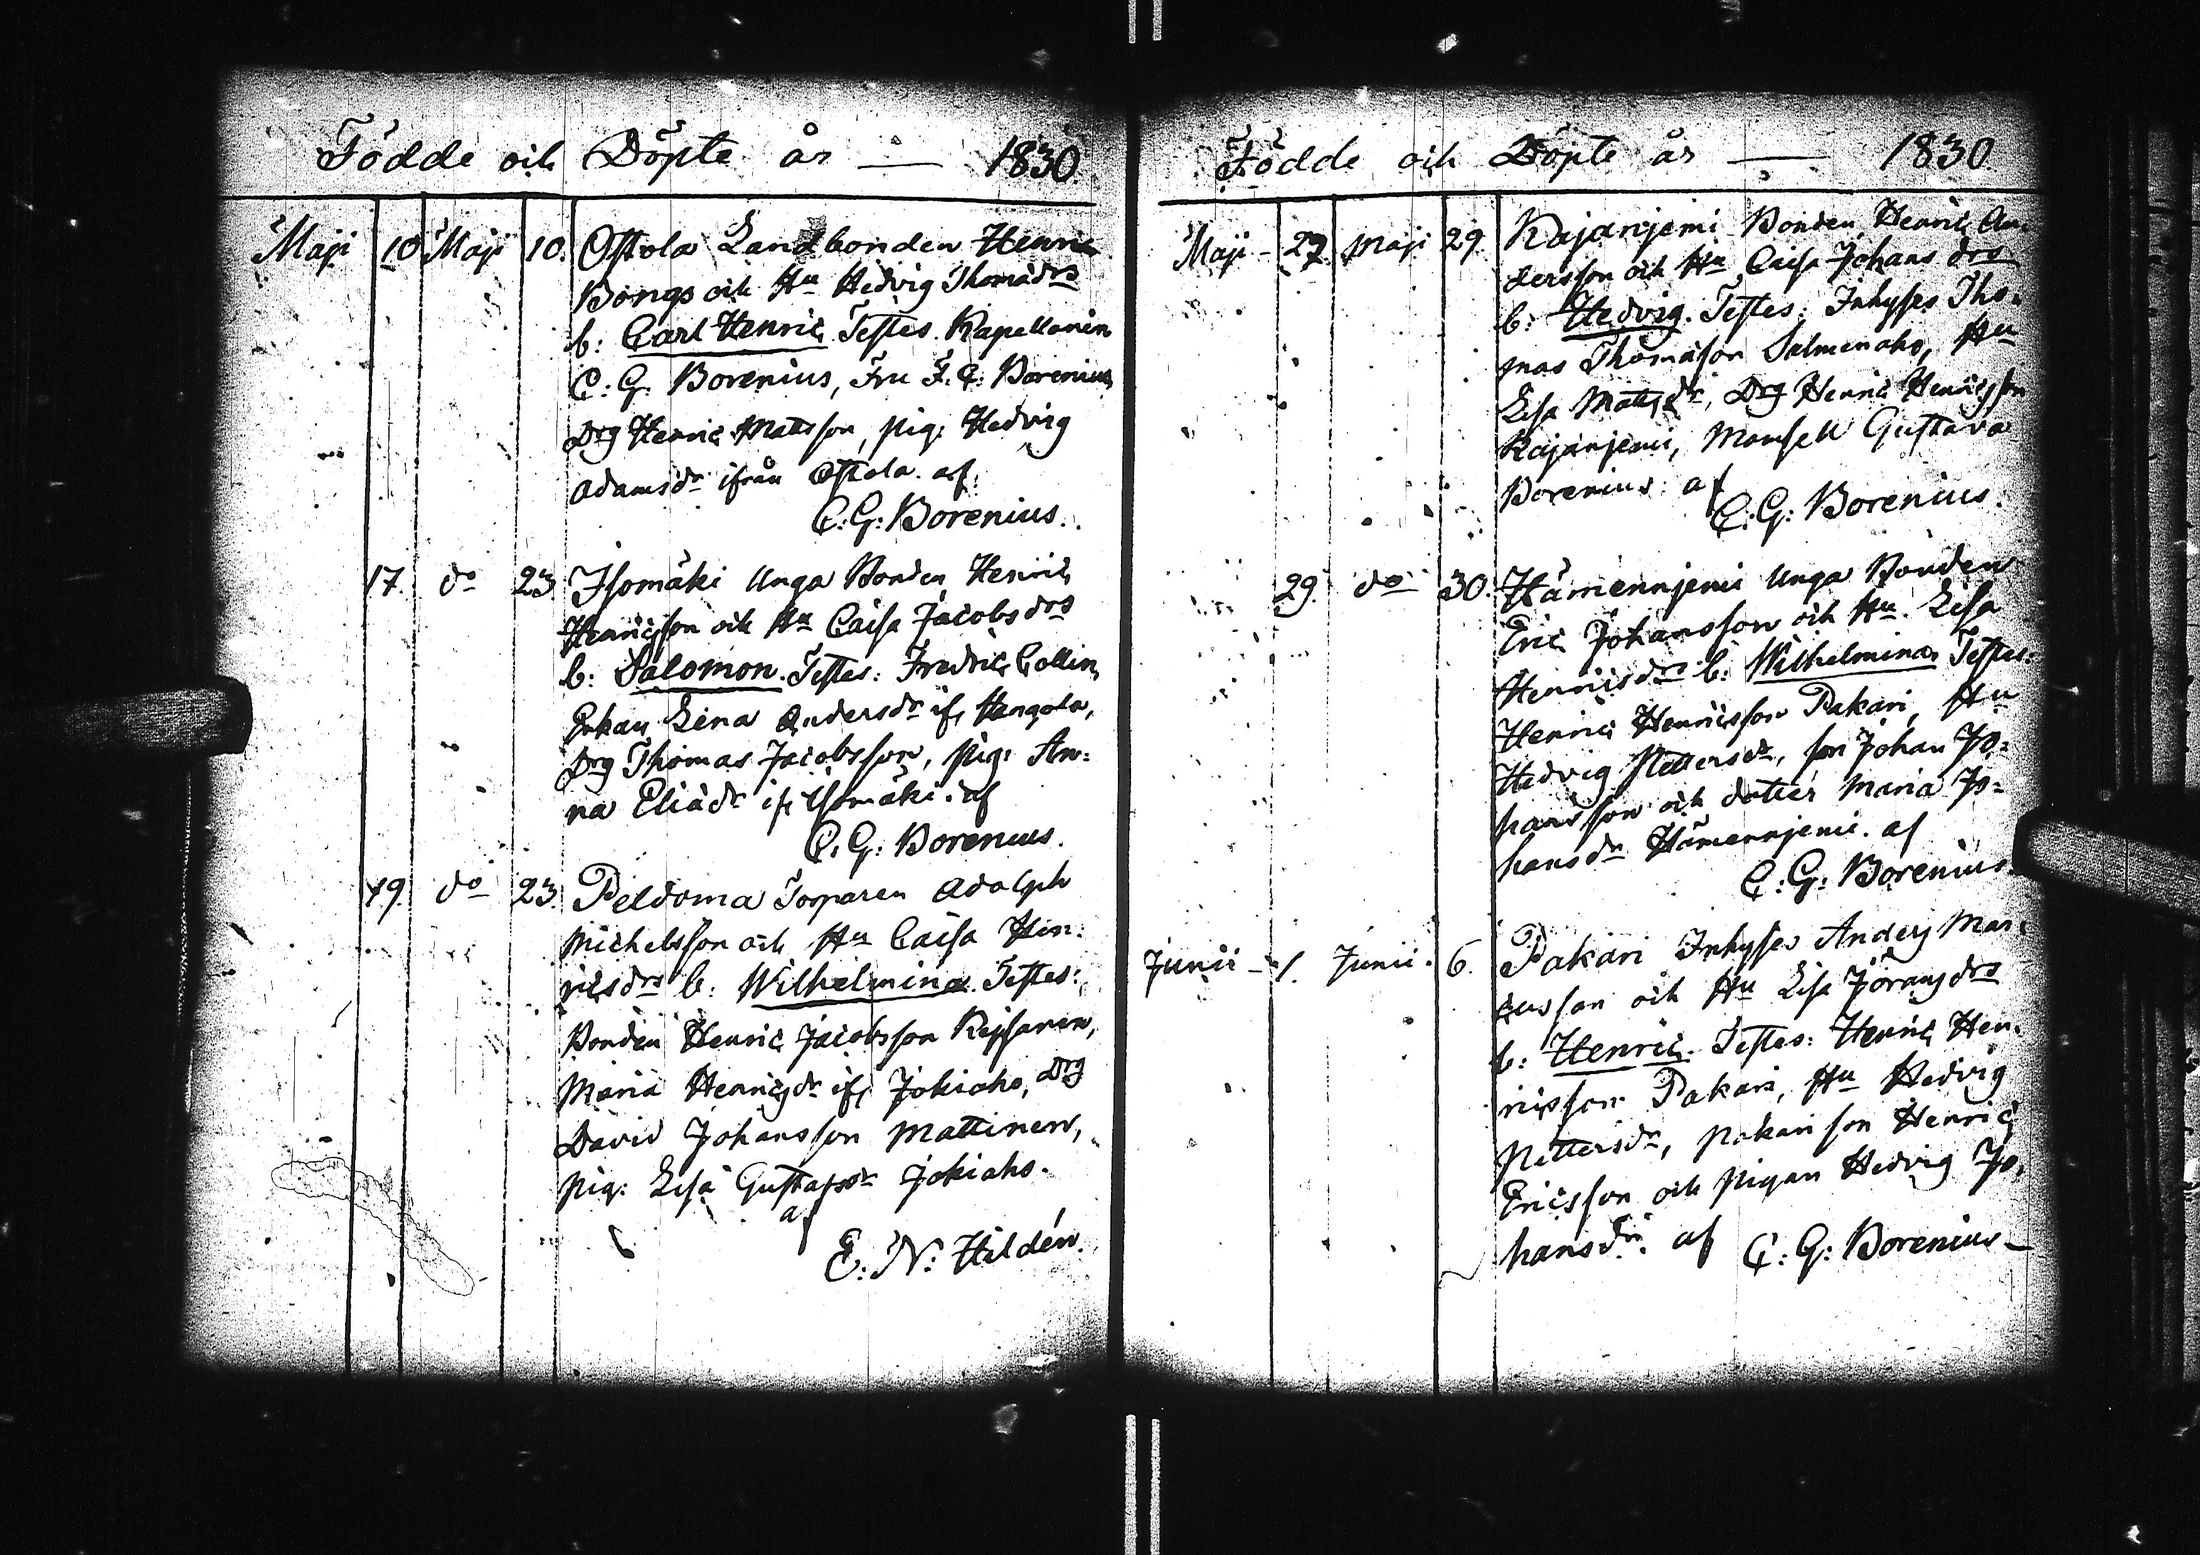 Födde och Döpte år — 1830.
Maji 10 Maji 10. Ofstola Landbonden Henric
Bongs och Hu Hedvig Thomädrs
b: Carl Henric. Testes. Kapellanen
C: G. Borenius, Fru F: C: Borenius,
Drg Henric Mattsson, pig: Hedvig
Adamsdr ifrån Ofstola. af
C: G: Borenius.
17. do 23. Isomäki Unga Bonden Henric
Henricsson och Hu Caisa Jacobsdrs
b: Salomon. Testes: Fredric Collin,
Enkan Lena Andersdr if. Hangola,
Drg Thomas Jacobsson, pig: An=
na Eliädr if. Isomäki. af
C. G: Borenius.
19. do 23. Peldoma Torparen Adolph
Michelsson och Hu Caisa Hen=
ricsdrs b: Wilhelmina. Testes:
Bonden Henric Jacobsson Rejsanen,
Maria Henricsdr if. Jokiaho, Drg
David Johansson Mattinen,
pig: Lisa Gustafsdr Jokiaho.
af
E: N: Hildén.
Födde och Döpte år — 1830
Maji - 27. Maji 29. Kajanjemi Bonden Henric An=
dersson och Hu Caisa Johans drs
b: Hedvig. Testes: Inhyses Tho=
mas Thomäson Salmenaho, Hu
Lisa Matsdr, Drg Henric Henricsson
Kajanjemi, Mamsell Gustava
Borenius. af
C: G: Borenius.
29. do 30. Hämennjemi Unga Bonden
Eric Johansson och Hu. Lisa
Henricsdrs b: Wilhelmina. Testes:
Henric Henricsson Pakari, Hu
Hedvig Pettersdr, son Johan Jo=
hansson och dotter Maria Jo=
hansdr Hämennjemi. af
C: G: Borenius.
Junii - 1. Junii. 6. Pakari Inhyses Anders Mar=
cusson och Hu Lisa Jöransdrs
b: Henric. Testes: Henric Hen=
ricsson Pakari, Hu Hedvig
Pettersdr, Pakari son Henric
Ericsson och pigan Hedvig Jo=
hansdr. af C: G: Borenius